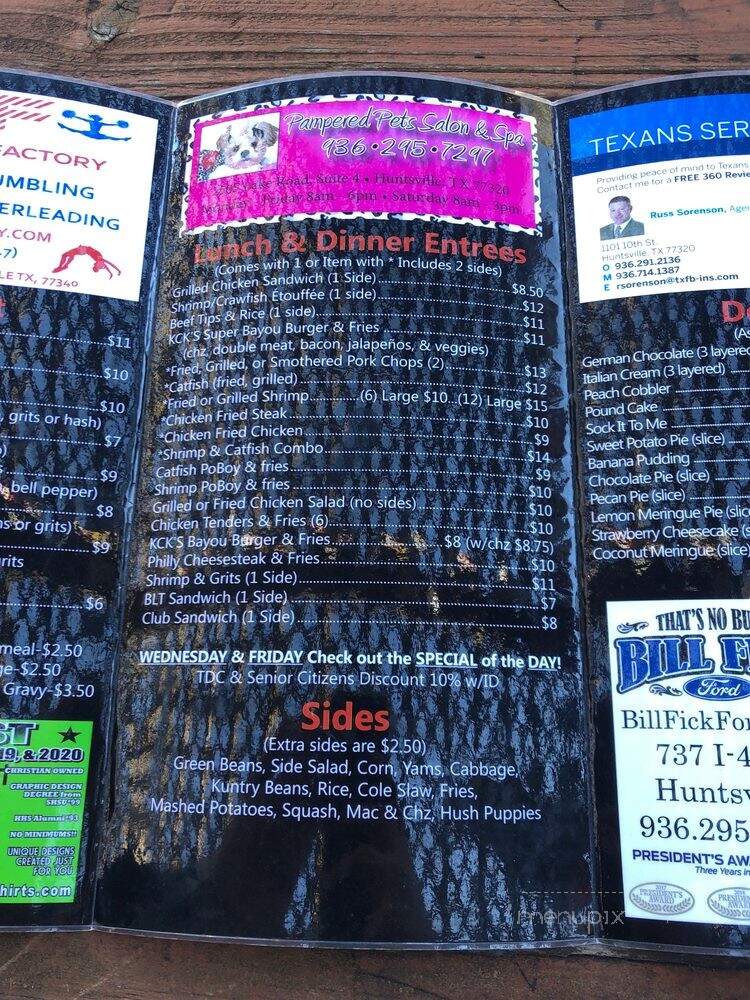 FACTORY
UMBLING
ERLEADING
Y.COM
-7)
LE TX, 77340
$11
$10
$10
, grits or hash)
$7
$9
bell pepper)
$8
s or grits)
$9
rits
$6
meal-$2.50
ge-$2.50
Gravy-$3.50
ST
19, & 2020
CHRISTIAN OWNED
GRAPHIC DESIGN
DEGREE from
SHSU '99
HHS Alumni '93
NO MINIMUMS!!
UNIQUE DESIGNS
CREATED JUST
FOR YOU
hirts.com
Pampered Pets Salon & Spa
936•295•7297
Road, Suite 4 • Huntsville, TX 77320
Friday 8am - 6pm • Saturday 8am - 3pm
Lunch & Dinner Entrees
(Comes with 1 or Item with * Includes 2 sides)
Grilled Chicken Sandwich (1 Side) $8.50
Shrimp/Crawfish Étouffée (1 side) $12
Beef Tips & Rice (1 side) $11
KCK'S Super Bayou Burger & Fries $11
(chz, double meat, bacon, jalapeños, & veggies)
*Fried, Grilled, or Smothered Pork Chops (2) $13
*Catfish (fried, grilled) $12
*Fried or Grilled Shrimp (6) Large $10 (12) Large $15
*Chicken Fried Steak $10
*Chicken Fried Chicken $9
*Shrimp & Catfish Combo $14
Catfish PoBoy & fries $9
Shrimp PoBoy & fries $10
Grilled or Fried Chicken Salad (no sides) $10
Chicken Tenders & Fries (6) $10
KCK'S Bayou Burger & Fries $8 (w/chz $8.75)
Philly Cheesesteak & Fries $10
Shrimp & Grits (1 Side) $11
BLT Sandwich (1 Side) $7
Club Sandwich (1 Side) $8
WEDNESDAY & FRIDAY Check out the SPECIAL of the DAY!
TDC & Senior Citizens Discount 10% w/ID
Sides
(Extra sides are $2.50)
Green Beans, Side Salad, Corn, Yams, Cabbage,
Kuntry Beans, Rice, Cole Slaw, Fries,
Mashed Potatoes, Squash, Mac & Chz, Hush Puppies
menupix
TEXANS SER
Providing peace of mind to Texans
Contact me for a FREE 360 Revie
Russ Sorenson, Agen
1101 10th St.
Huntsville, TX 77320
O 936.291.2136
M 936.714.1387
E rsorenson@txfb-ins.com
De
(As
German Chocolate (3 layered
Italian Cream (3 layered)
Peach Cobbler
Pound Cake
Sock It To Me
Sweet Potato Pie (slice)
Banana Pudding
Chocolate Pie (slice)
Pecan Pie (slice)
Lemon Meringue Pie (slice
Strawberry Cheesecake (s
Coconut Meringue (slice
THAT'S NO BU
BILL F
Ford
BillFickFor
737 I-4
Huntsv
936.295
PRESIDENT'S AWA
Three Years in
2017
PRESIDENT'S
AWARD